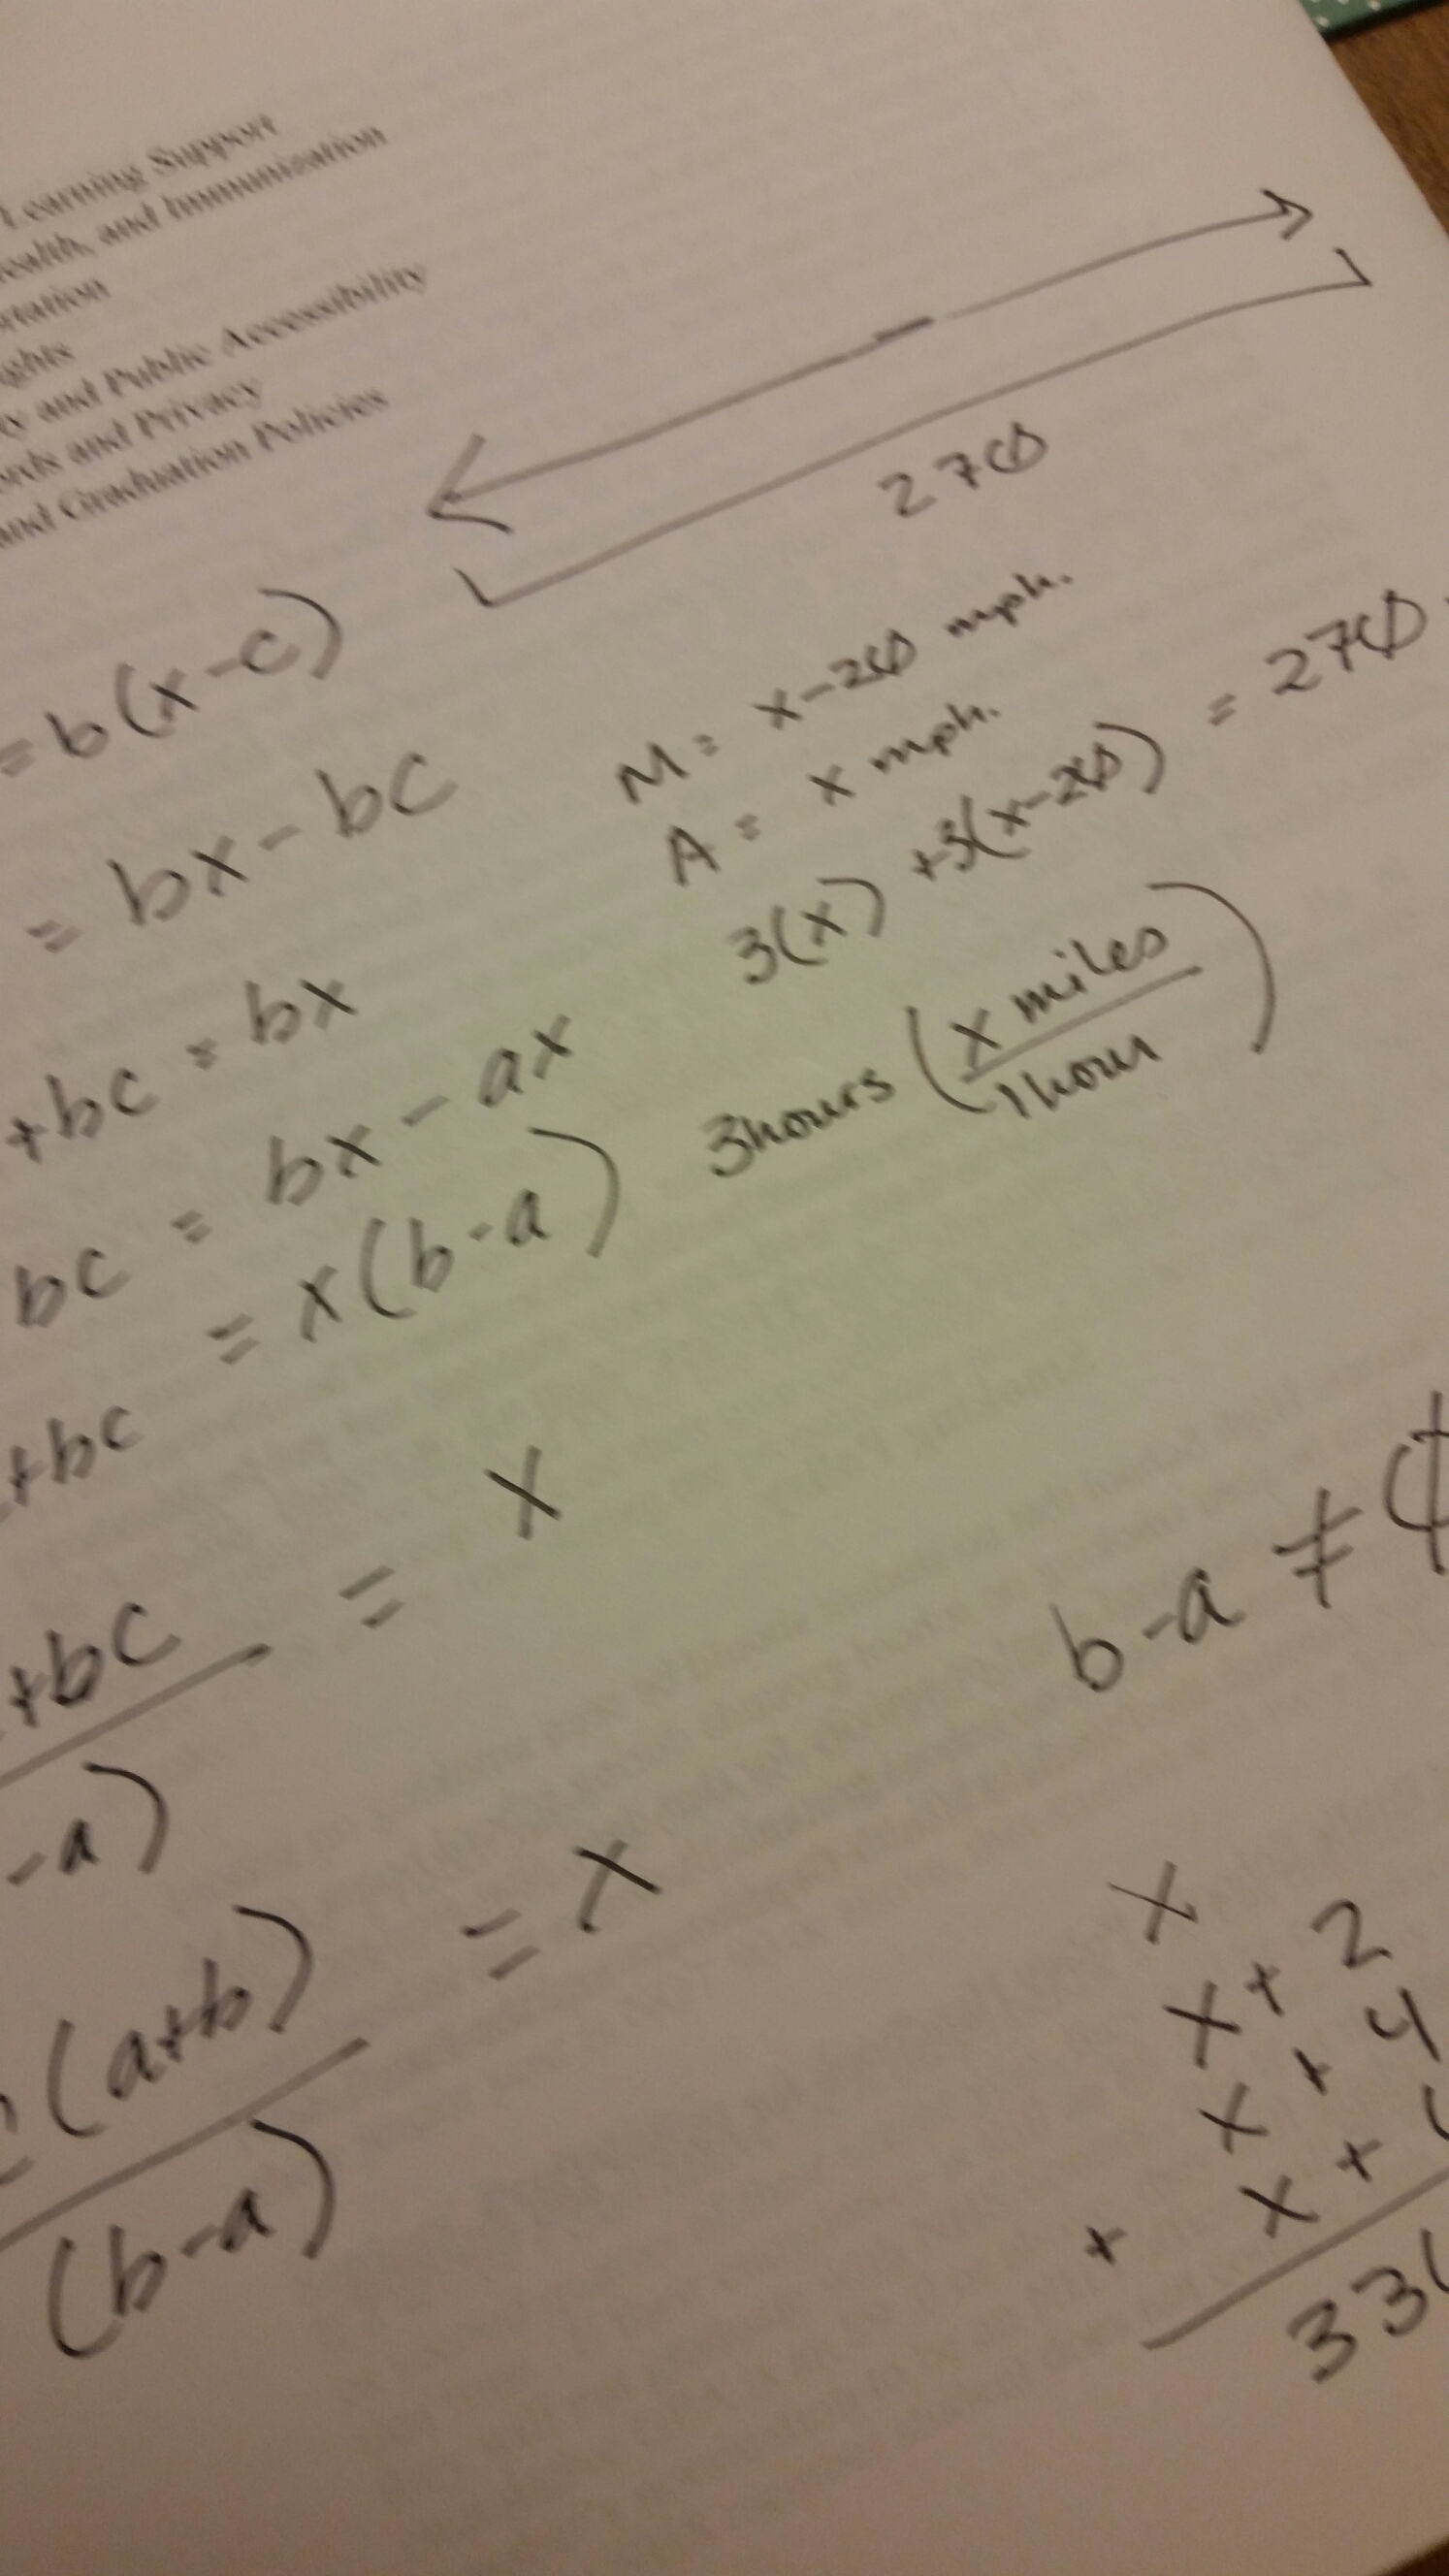 Learning Support
ealth, and Immunization
rtation
ights
y and Public Accessibility
ords and Privacy
and Graduation Policies
270
= b(x-c)
= bx - bc
+bc = bx
bc = bx - ax
= x(b-a)
+bc
+bc = x
-a)
(a+b) = x
(b-a)
M = x-20 mph.
A = x mph.
3(x) +3(x-20) = 270
3hours (x miles
1 hour)
b-a ≠
x
x + 2
x + 4
x +
+ x +
33